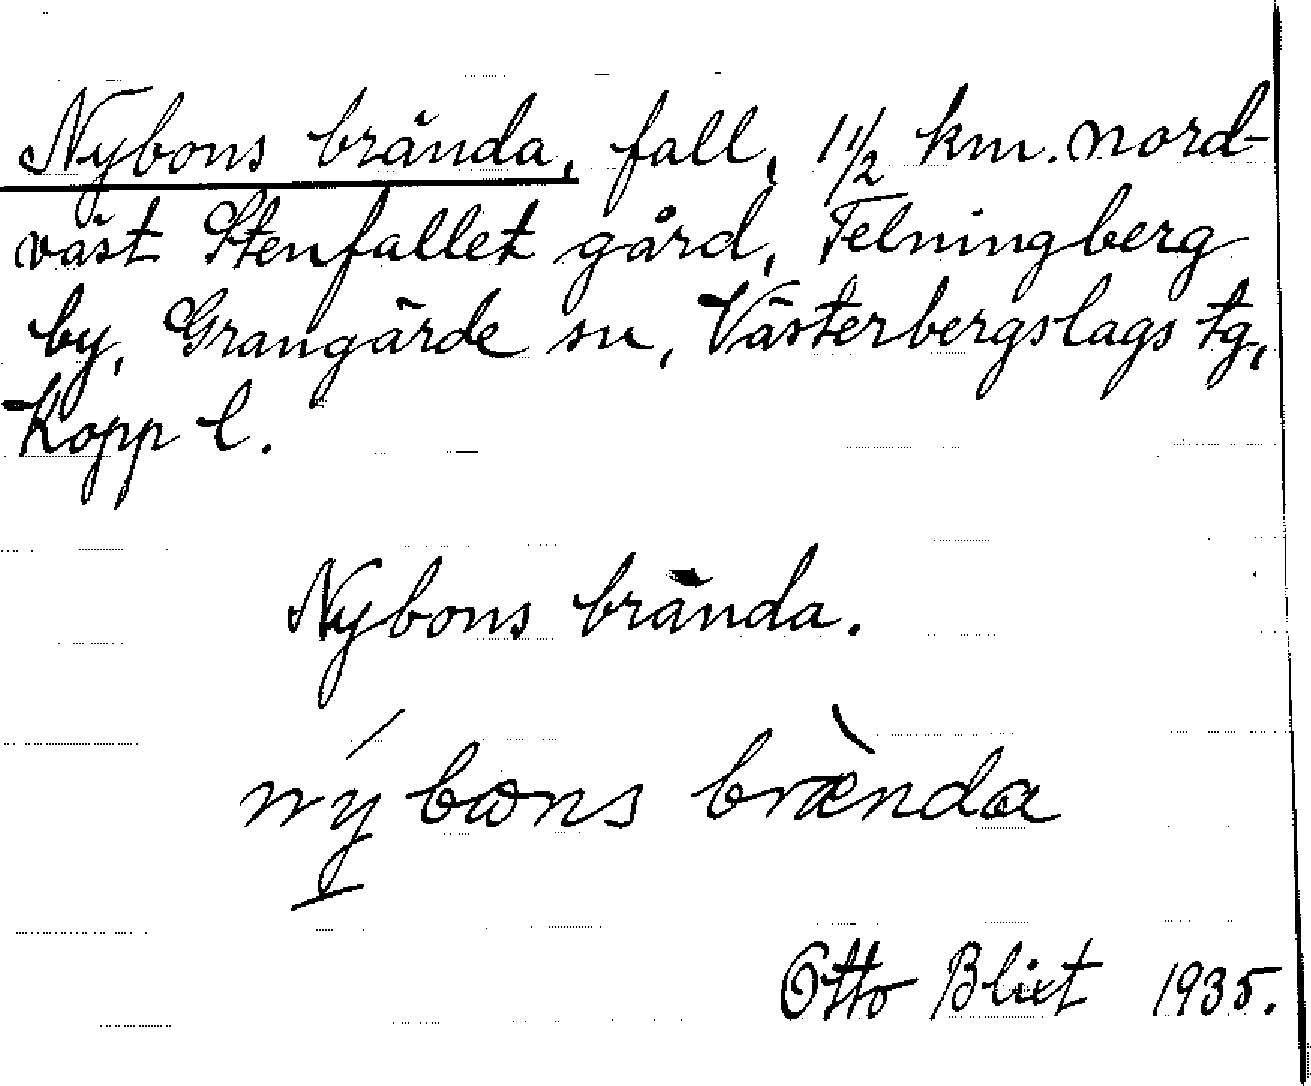 Nybons brända, fall, 1 1/2 km. nord-
väst Stenfallet gård, Felningberg
by, Grangärde sn, Västerbergslags tg,
Kopp l.
Nybons brända.
nýbωns brὰnda
Otto Blixt 1935.